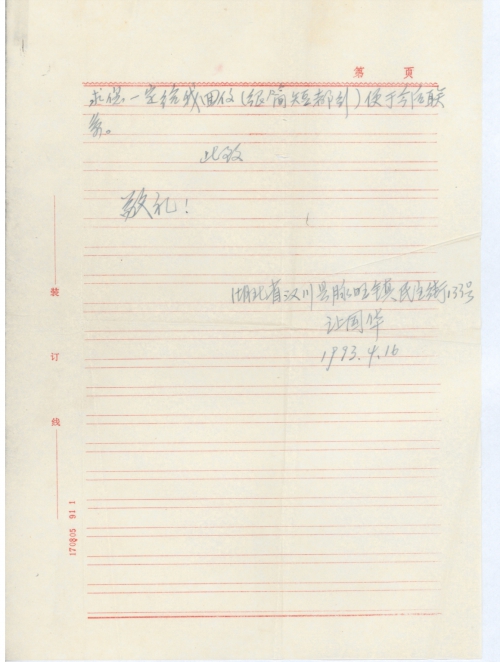 第 页
求您一定给我回信(纵简短都行)便于今后联
系。
此致
敬礼!
湖北省汉川县脉旺镇民主街133号
国华
1993.4.16
装
订
线
170805 91 1